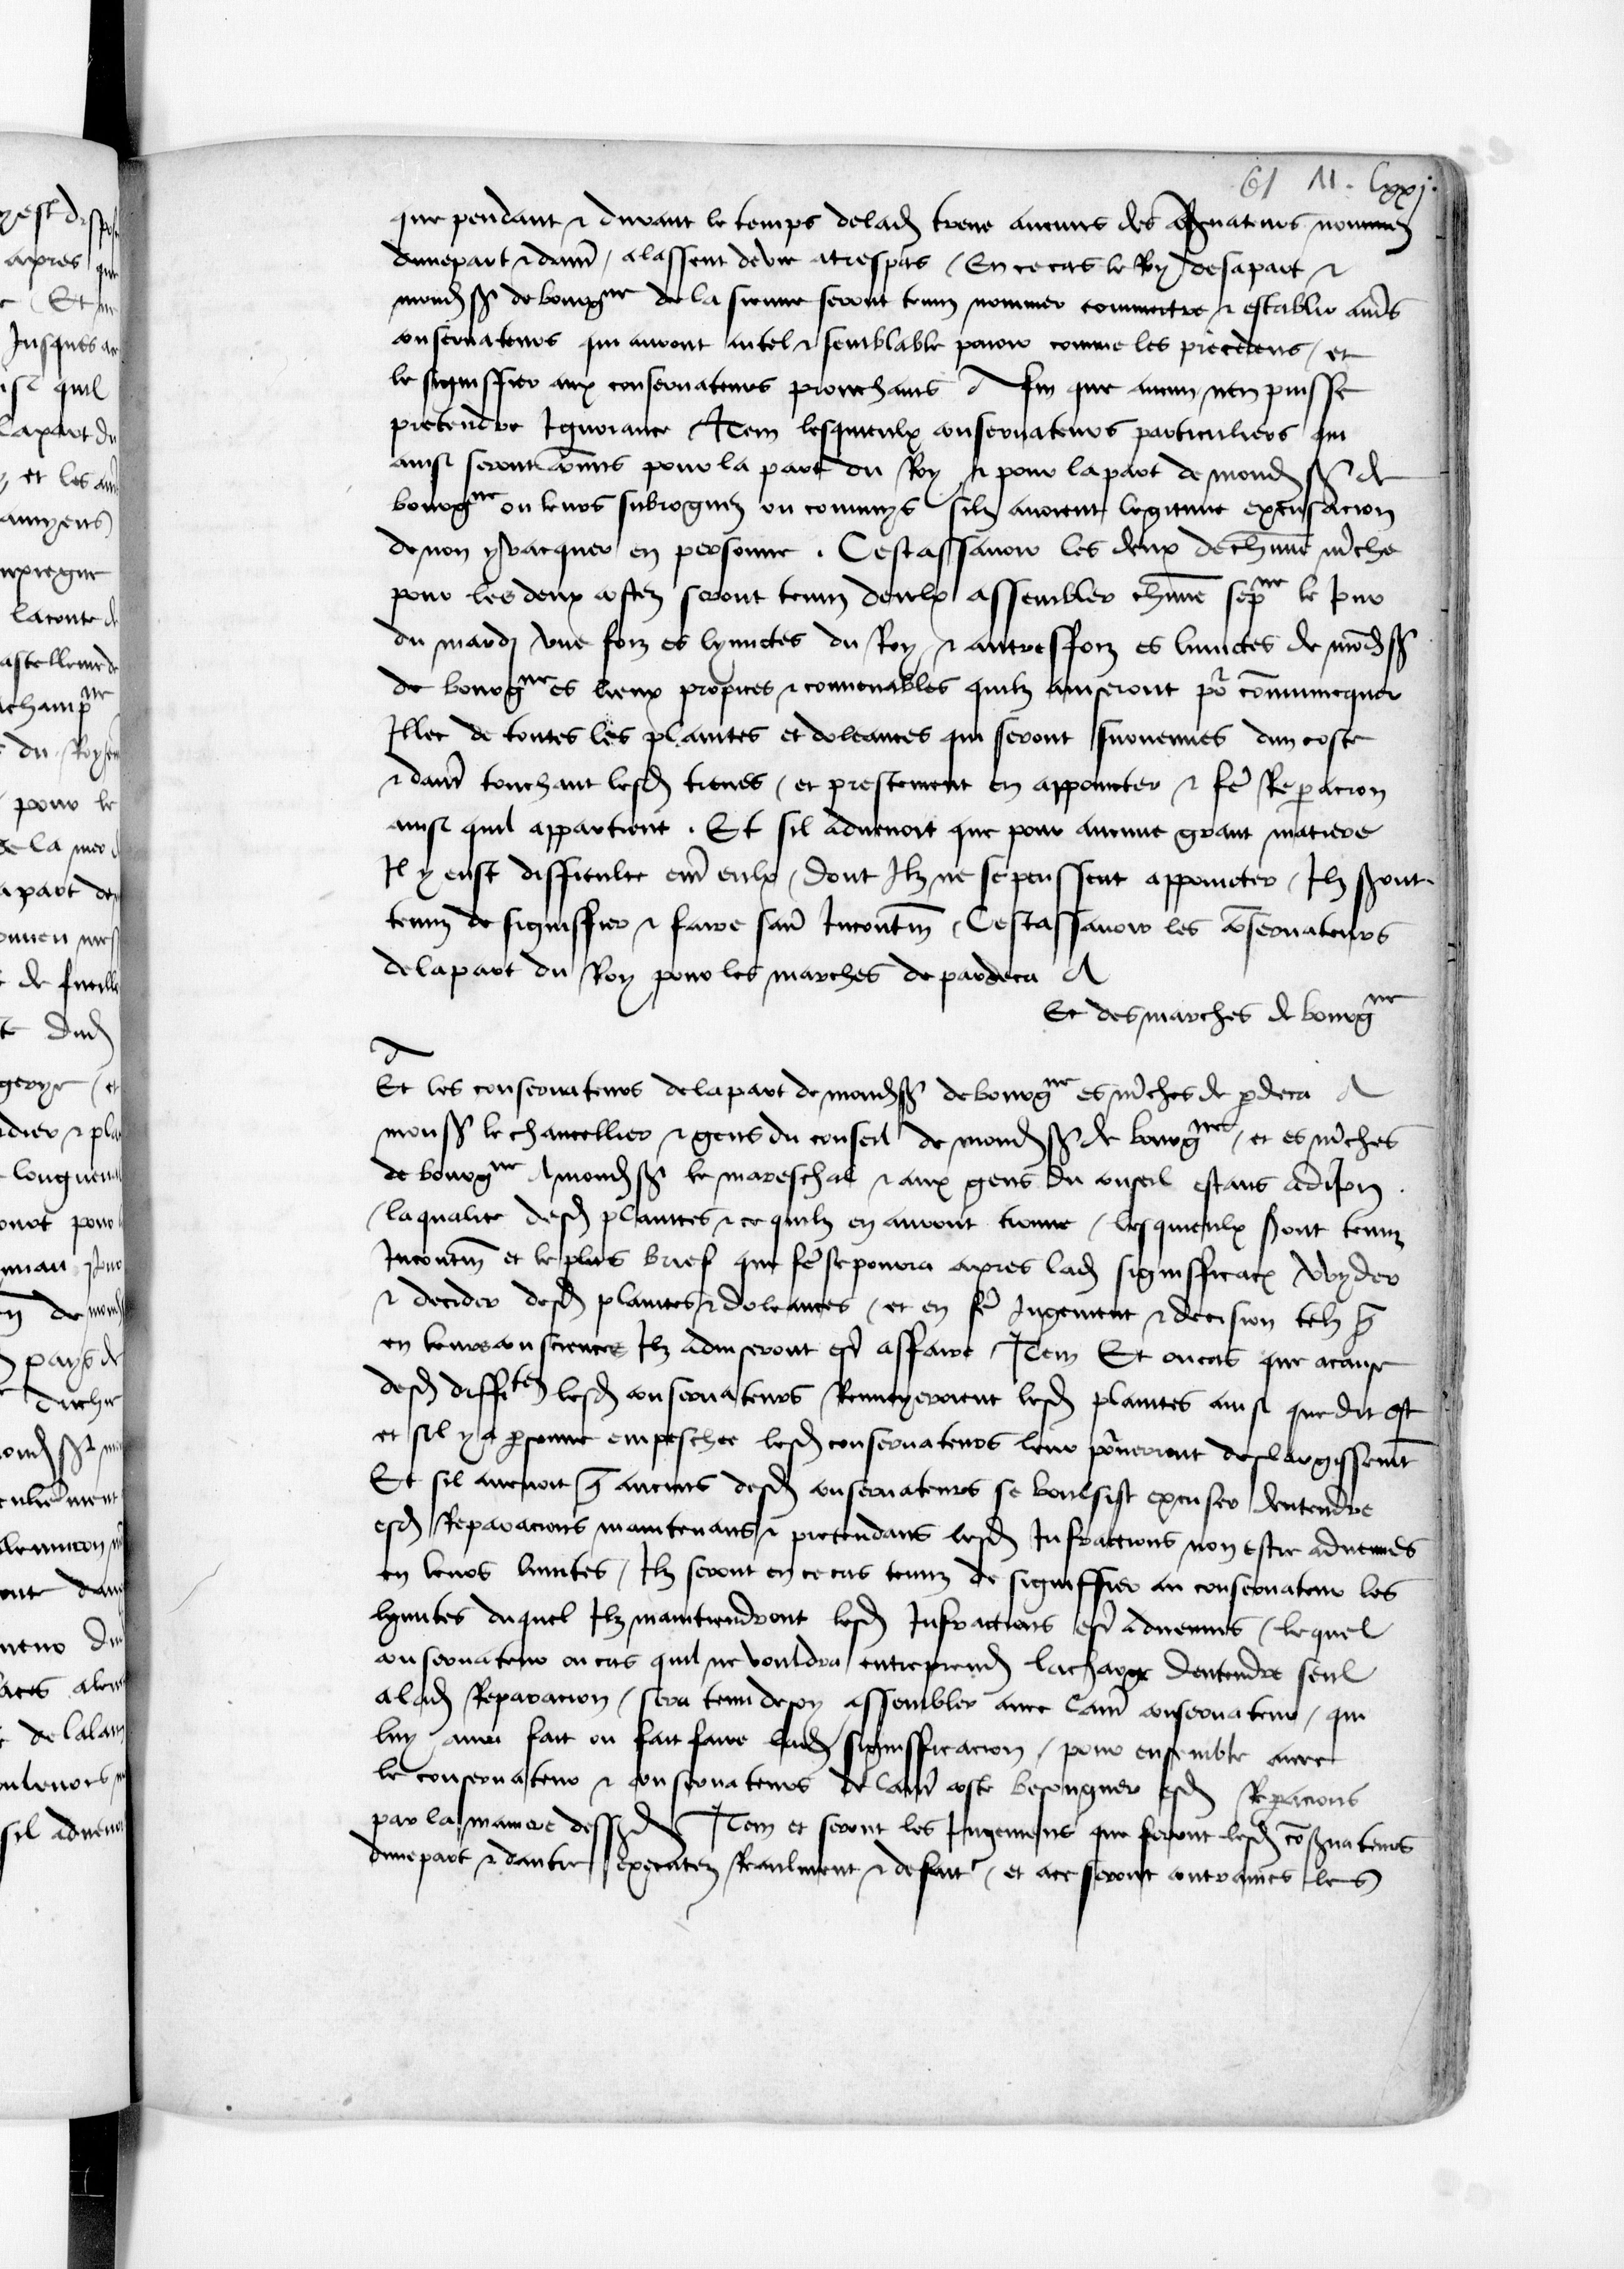 61 M. lxxj.
que pendant & durant le temps delad treue aucuns des conseruateurs nommez
dunepart & daut, alassent de vie a trespas, En ce cas le Roy desapart &
mond sr de bourgne de la sienne seront tenuz nommer commectre & establir autrs
conseruateurs qui auront autel & semblable pouoir comme les precedens, et
le signiffier aux conseruateurs prouchains A fin que aucun nen puisse
pretendre Ignorance Item lesquieulx conseruateurs particuliers qui
ainsi seront commis pour la part du Roy & pour lapart de mond sr de
bourgne ou leurs subroguez ou commys silz auoient legitime excusacion
denon y vacquer en personne. Cestassauoir les deux de chune mche
pour les deux costez seront tenuz deulx assembler chune sepne le Jour
du mardj vne foiz es lymites du Roy & autresfoiz es limites de mond sr
de bourgne es lieux propices & conuenables quilz auiseront pr communicquer
Illec de toutes les plaintes et doleances qui seront suruenues dun coste
& daut touchant lesd treues, et prestement en appoincter & fe Reparacion
ainsi quil appartient. Et sil aduenoit que pour aucune grant matiere
Il y eust difficulte ent eulx, dont Ilz ne sepeussent appoincter, Ilz sront
tenuz de signiffier & faire sauoir Incontint, Cestassauoir les conseruateurs
delapart du Roy pour les marches de pardeca A
Et des marches de bourgne
A
Et les conseruateurs delapart de mondsr de bourgne es mches de pdeca A
monsr le chancellier & gens du conseil de mond sr de bourgne, et es mches
de bourgne A mondsr le mareschal & aux gens du conseil estans a diJon
la qualite desd plaintes & ce quilz en auront trouue, lesquieulx sront tenuz
Incontint et le plus brief que fe se pourra apres lad signifficacon Wyder
& decider desd plaintes & doleances, et en fe Jugement & decision telz q
en leurs consciences Ilz aduiseront estre affaire, Item Et oucas que acause
desd diffitez lesd conseruateurs Renuoyeroient lesd plaintes ainsi que dit est
et sil y a psonne empeschee lesd conseruateurs leur pourueoient deslargissemt
Et sil auenoit q aucuns desd conseruateurs se voulsist excuser dentendre
esd Reparacions maintenans & pretendans lesd Infractions non estre aduenues
en leurs limites, Ilz seront en ce cas tenuz de signiffier au conseruateur les
lymites duquel Ilz maintiendront lesd Infractions estre aduenues, lequel
conseruateur oucas quil ne vouldra entreprend lacharge dentendre seul
alad Reparacion, sera tenu desoy assembler auec laut conseruateur, qui
luy aura fait ou fait faire lad signifficacion, pour ensemble auec
le conseruateur & conseruateurs de laut coste besongner esd Reparacions
par la maniere dessusd Item et seront les Jugemens que feront lesd conseruateurs
dunepart & dautre executez Reaulment & defait, et ace seront contrains les